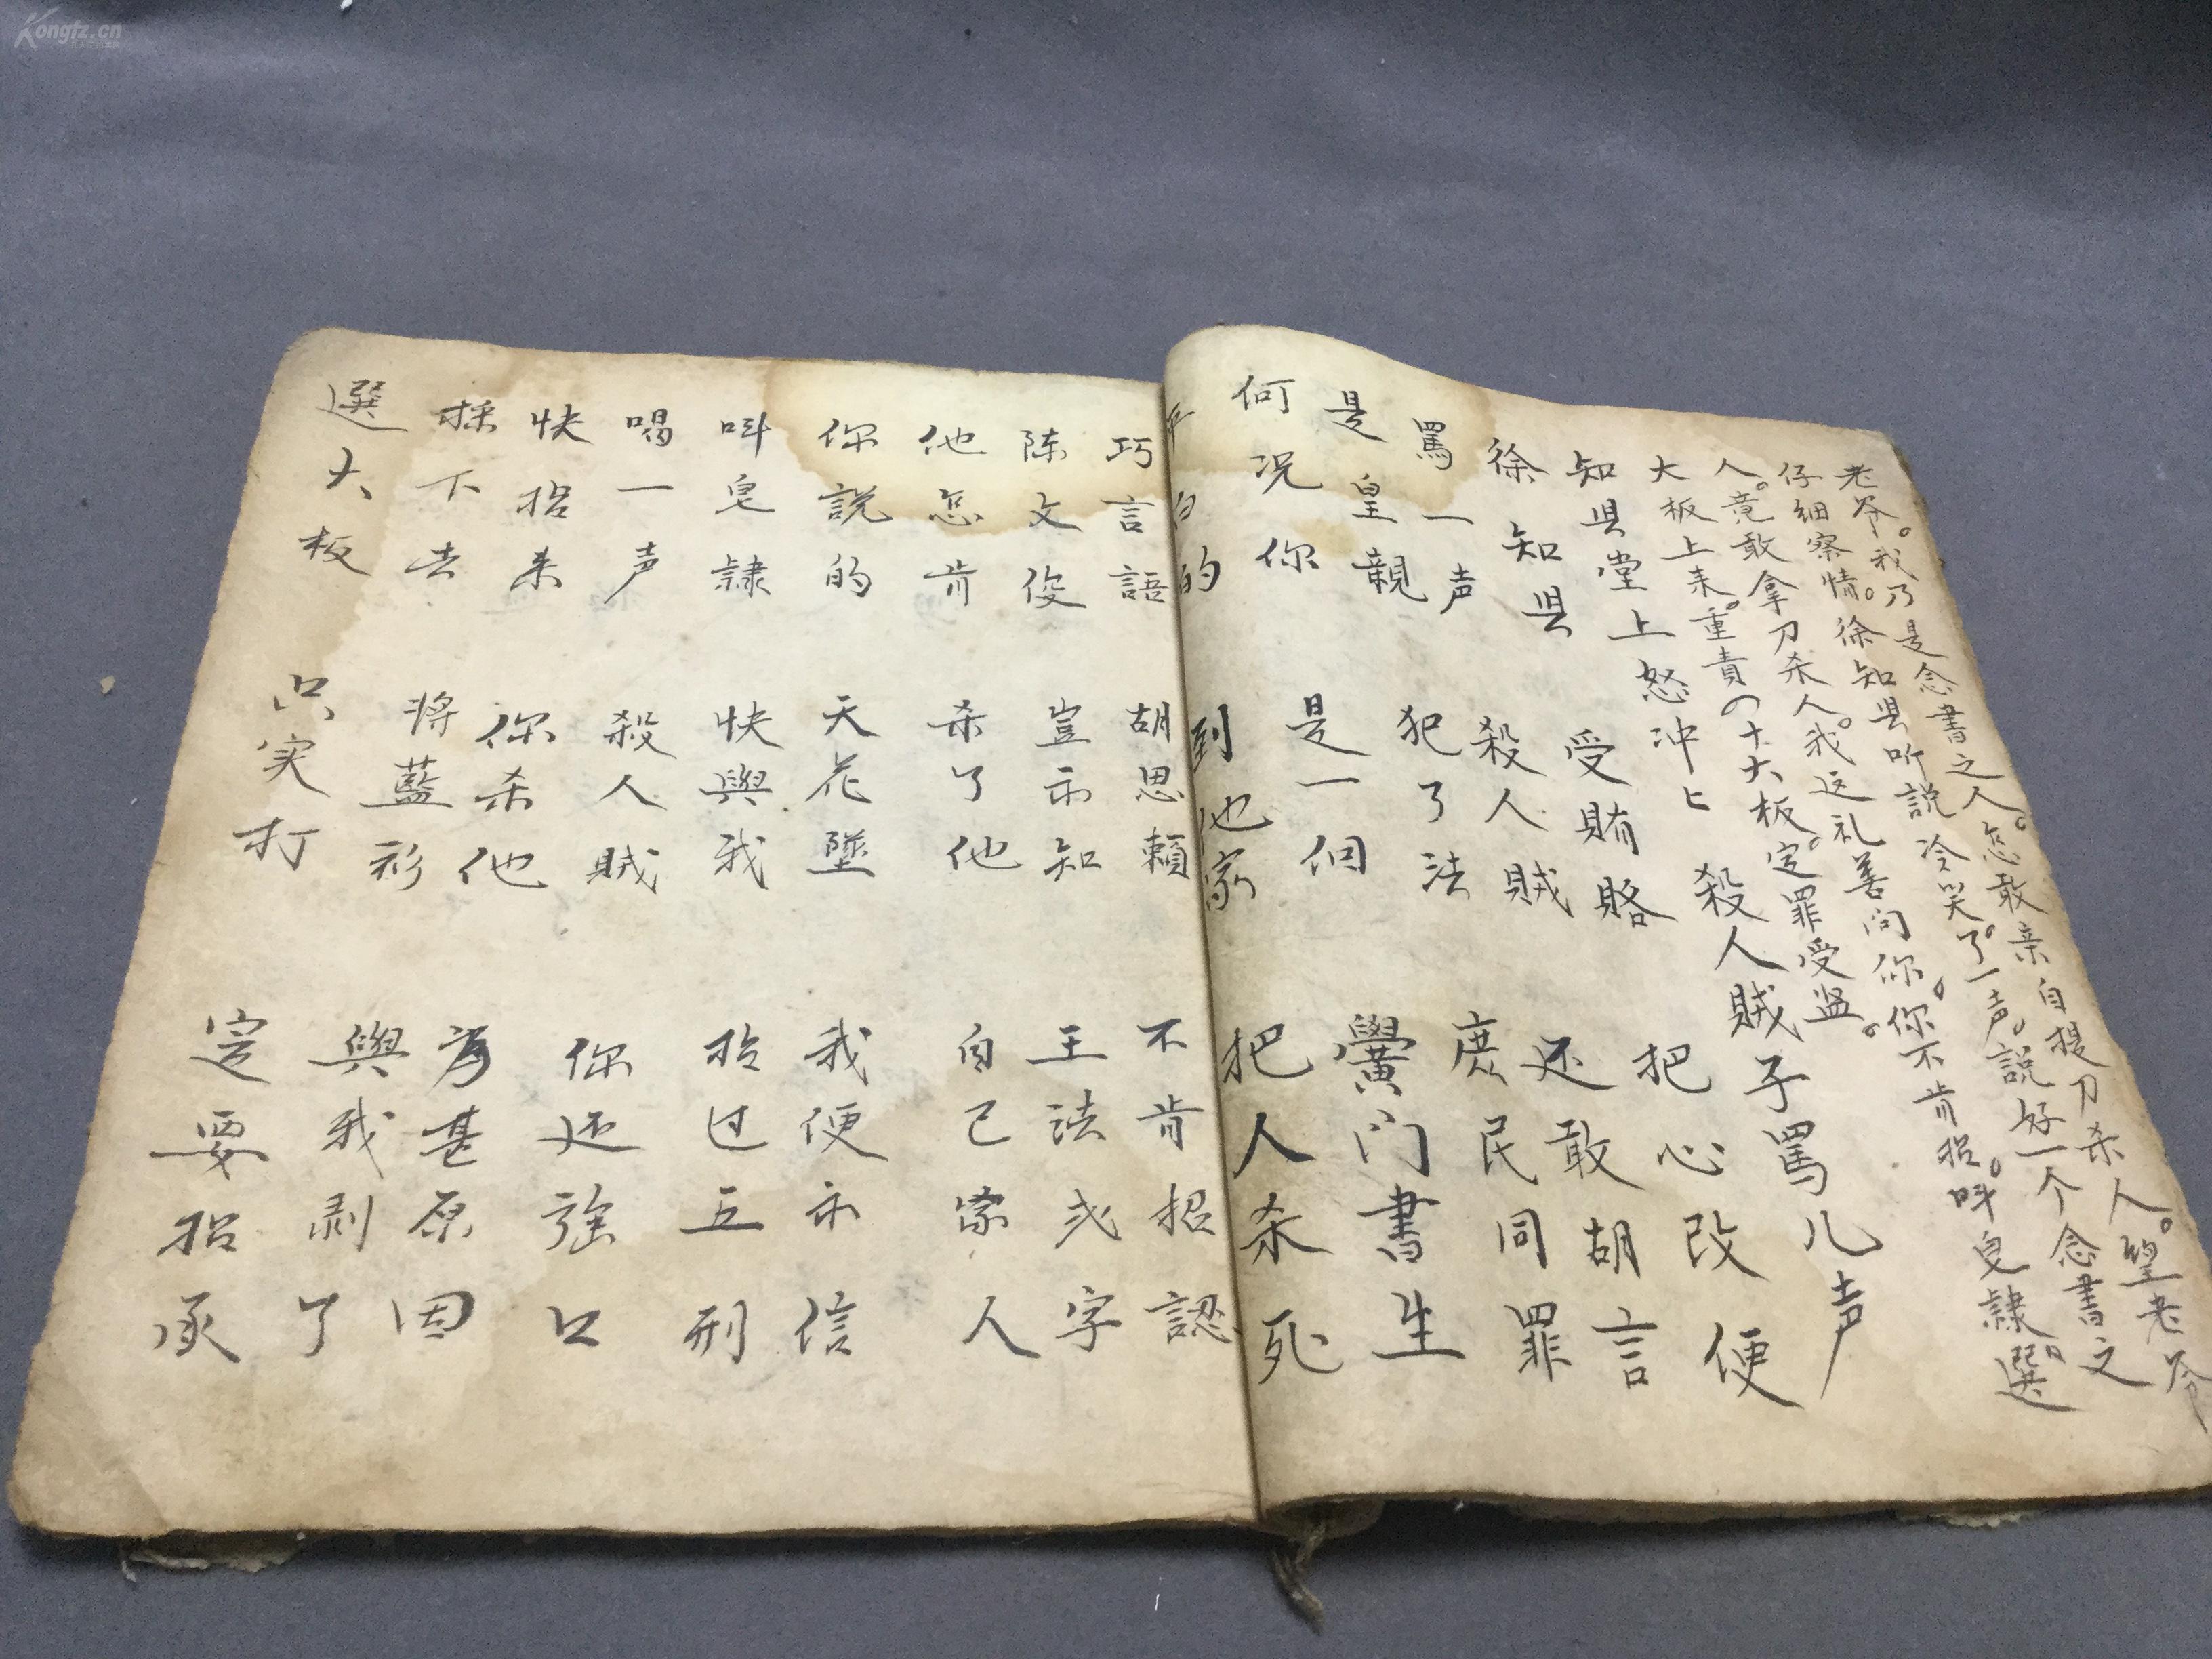 老爷。我乃是念書之人。怎敢亲自提刀杀人。望老爷
仔細察情。徐知县听説冷笑了一声。説好一个念書之
人。竟敢拿刀杀人。我这礼善问你。你不肯招。呌皂隷。選
大板上来。重責四十大板。定罪受监。
殺人賊子罵几声
知县堂上怒冲匕 把心改便
徐知县 受賄賂 还敢胡言
罵一声 殺人賊 庶民同罪
是皇親 犯了法 黌门書生
何况你 是一個 把人杀死
白的 到他家
巧言語 胡思賴 不肯招認
陈文俊 豈不知 王法弐字
他怎肯 杀了他 自己家人
你説的 天花墜 我便不信
呌皂隷 快與我 抬过五刑
喝一声 殺人賊 你还強口
快招来 你杀他 为甚原因
採下去 將藍衫 與我剥了
選大板 只实打 定要招承
Kongfz.cn